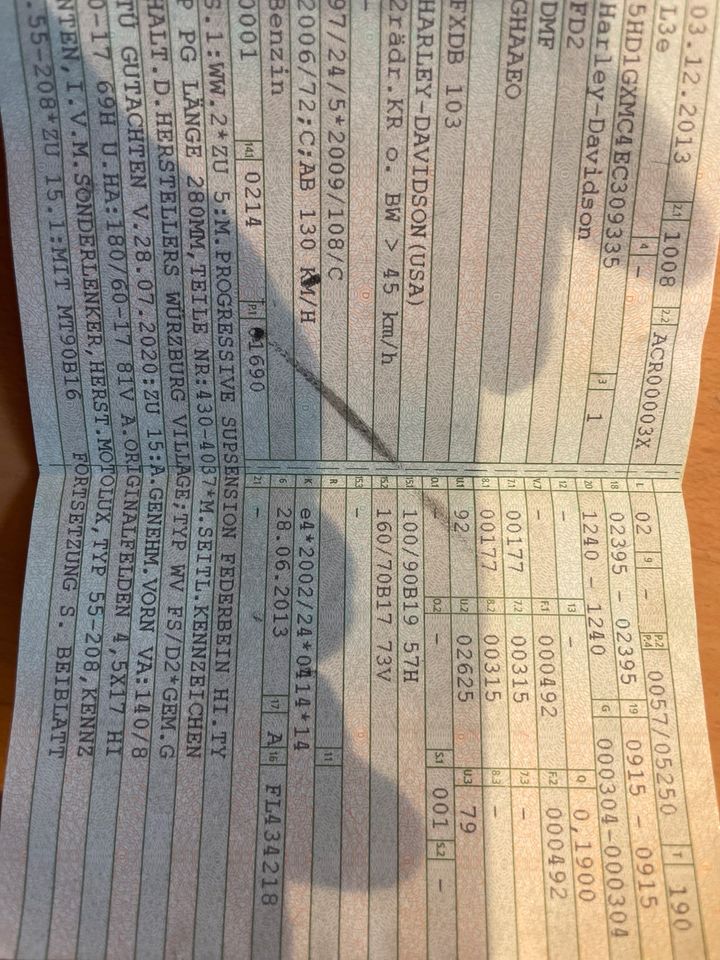 03.12.2013 2.1 1008 2.2 ACR00003X
L3e 4 –
5HD1GXMC4EC309335 3 1
Harley-Davidson
FD2
DMF
GHAAEO
FXDB 103
HARLEY-DAVIDSON(USA)
2rädr.KR o. BW > 45 km/h
–
97/24/5*2009/108/C
2006/72;C;AB 130 KM/H
Benzin
0001 14.1 0214 P.1 01690
L 02 9 – P.2 P.4 0057/05250 T 190
18 02395 – 02395 19 0915 – 0915
20 1240 – 1240 G 000304-000304
12 – 13 – Q 0,1900
V.7 – F.1 000492 F.2 000492
7.1 00177 7.2 00315 7.3 –
8.1 00177 8.2 00315 8.3 –
U.1 92 U.2 02625 U.3 79
O.1 – O.2 – S.1 001 S.2 –
15.1 100/90B19 57H
15.2 160/70B17 73V
15.3 –
R 11
K e4*2002/24*0414*14
6 28.06.2013 17 A 16 FL434218
21 –
S.1:WW.2*ZU 5:M.PROGRESSIVE SUPSENSION FEDERBEIN HI.TY
P PG LÄNGE 280MM,TEILE NR:430-4037*M.SEITL.KENNZEICHEN
HALT.D.HERSTELLERS WÜRZBURG VILLAGE;TYP WV FS/D2*GEM.G
TÜ GUTACHTEN V.28.07.2020:ZU 15:A.GENEHM.VORN VA:140/8
0-17 69H U.HA:180/60-17 81V A.ORIGINALFELDEN 4,5X17 HI
NTEN,I.V.M.SONDERLENKER,HERST.MOTOLUX,TYP 55-208,KENNZ
.55-208*ZU 15.1:MIT MT90B16 FORTSETZUNG S. BEIBLATT